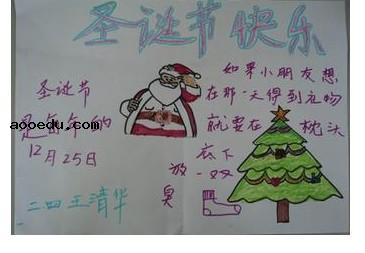 圣诞节快乐
圣诞节
是每年的
12月25日
二四王清华
如果小朋友想
在那一天得到礼物
就要在枕头
底下
放一双
臭
aooedu.com